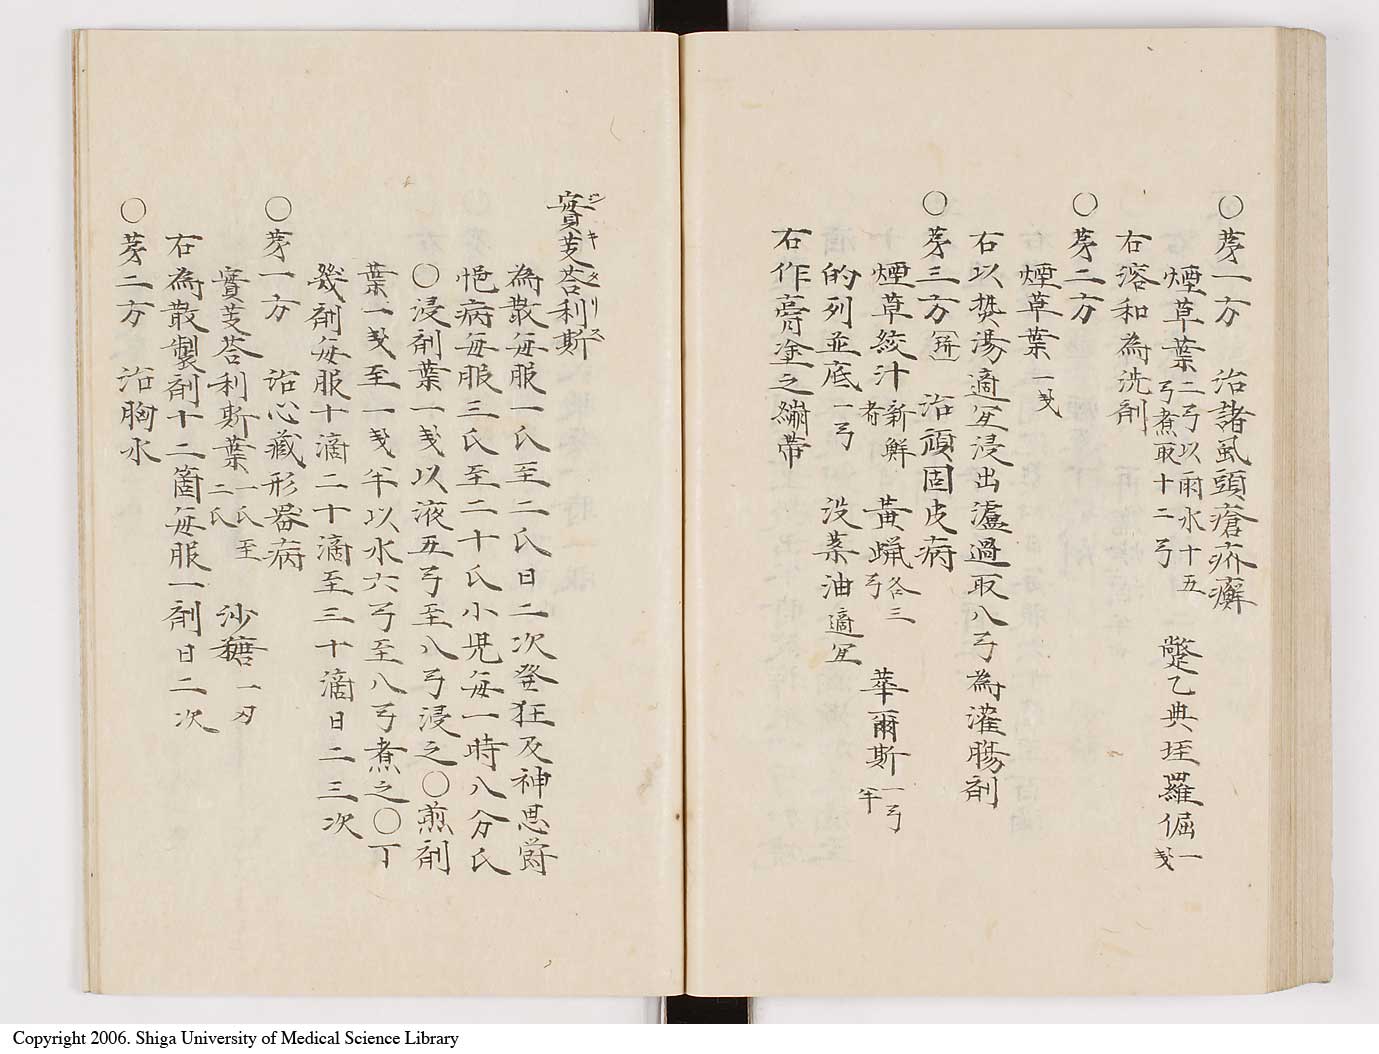 ○茅一方 治諸虱頭瘡疥癬
煙草葉二弓以雨水十五弓煮取十二弓 蹩乙典垤羅倔一戔
右溶和為洗剤
○茅二方
煙草葉一戔
右以熱湯適宜浸出濾過取八弓為灌腸剤
○茅三方 治頑固皮病
煙草絞汁新鮮者 黄蝋各三弓 華爾斯一弓半
的列並底一弓 没菜油適宜
右作膏塗之繃帯
實芰荅利斯
ジキタリス
為散毎服一氏至二氏日二次発狂及神思鬱
悒病毎服三氏至二十氏小児毎一時八分氏
○浸剤葉一戔以液五弓至八弓浸之○煎剤
葉一戔至一戔半以水六弓至八弓煮之○丁
幾剤毎服十滴二十滴至三十滴日二三次
○茅一方 治心蔵形器病
實芰荅利斯葉一氏至二氏 沙糖一刃
右為散製剤十二箇毎服一剤日二次
○茅二方 治胸水
Copyright 2006. Shiga University of Medical Science Library